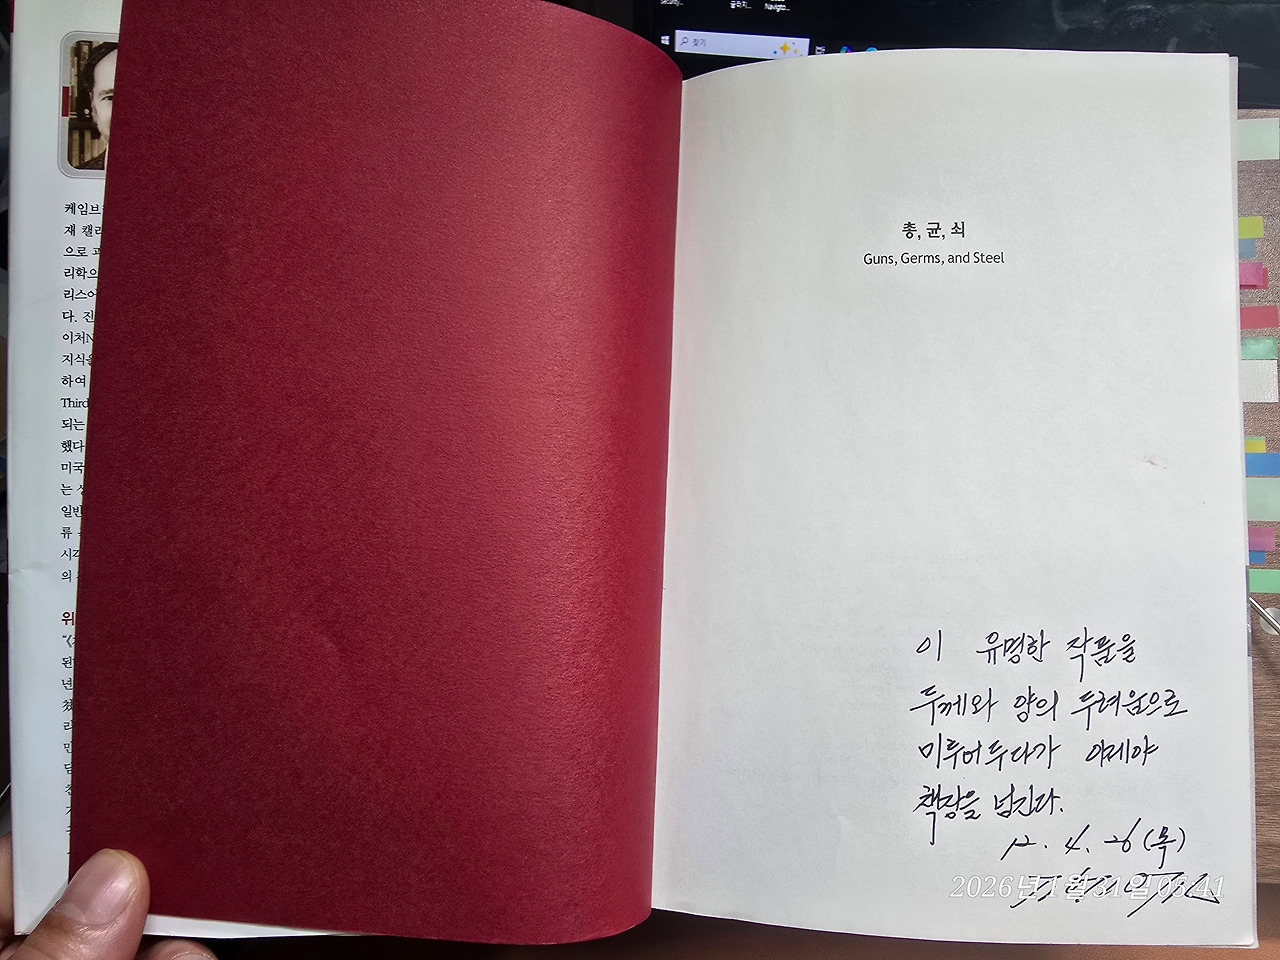 케임브
재 캘리
으로 과
리학으
리스어
다. 진
이처N
지식을
하여
Third
되는
했다
미국
는 
일반
류
시각
의
위
된
년
찾기
총, 균, 쇠
Guns, Germs, and Steel
이 유명한 작품을
두께와 양의 두려움으로
미루어두다가 이제야
책장을 넘긴다.
12. 4. 26 (목)
2026년 1월 31일 05:41